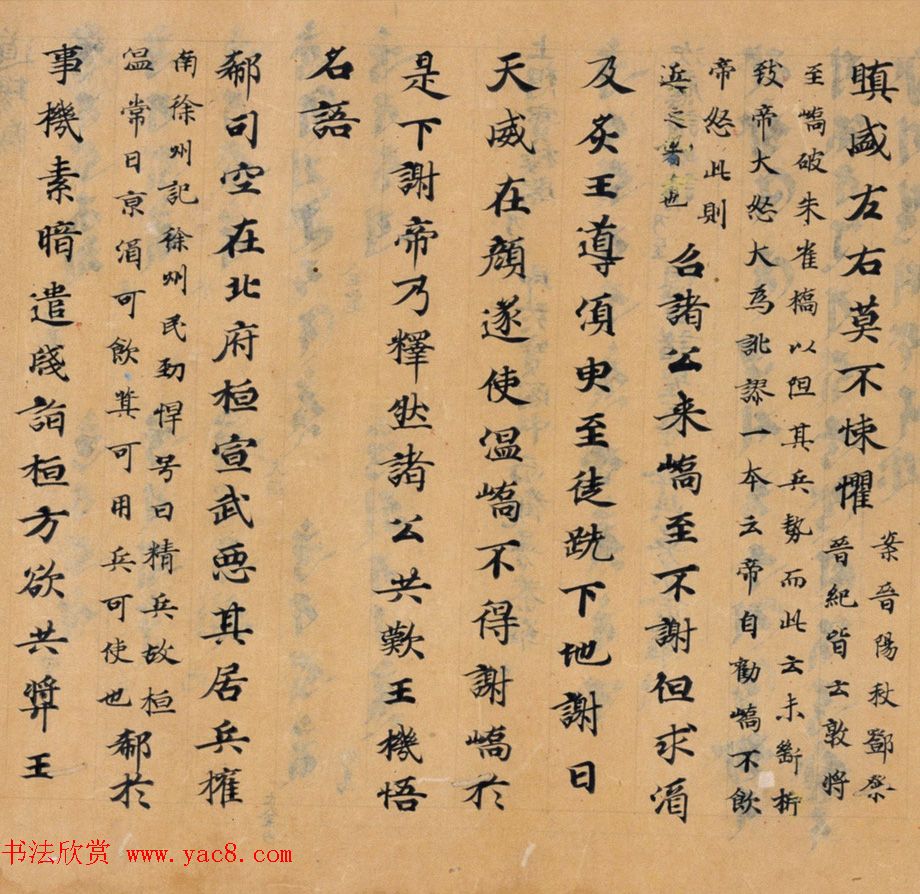 瞋盛左右莫不悚懼
案晉陽秋鄧粲
晉紀皆云敦將
至嶠破朱雀橋以阻其兵勢而此云未斷析
致帝大怒大為訛謬一本云帝自勸嶠不飲
帝怒此則
近之者也
召諸公来嶠至不謝但求酒
及炙王導須臾至徒跣下地謝曰
天威在顏遂使温嶠不得謝嶠於
是下謝帝乃釋然諸公共歎王機悟
名語
郗司空在北府桓宣武惡其居兵權
南徐州記徐州民勁悍号曰精兵故桓
温常曰京酒可飲箕可用兵可使也
郗於
事機素暗遣牋詣桓方欲共弉王
书法欣赏 www.yac8.com